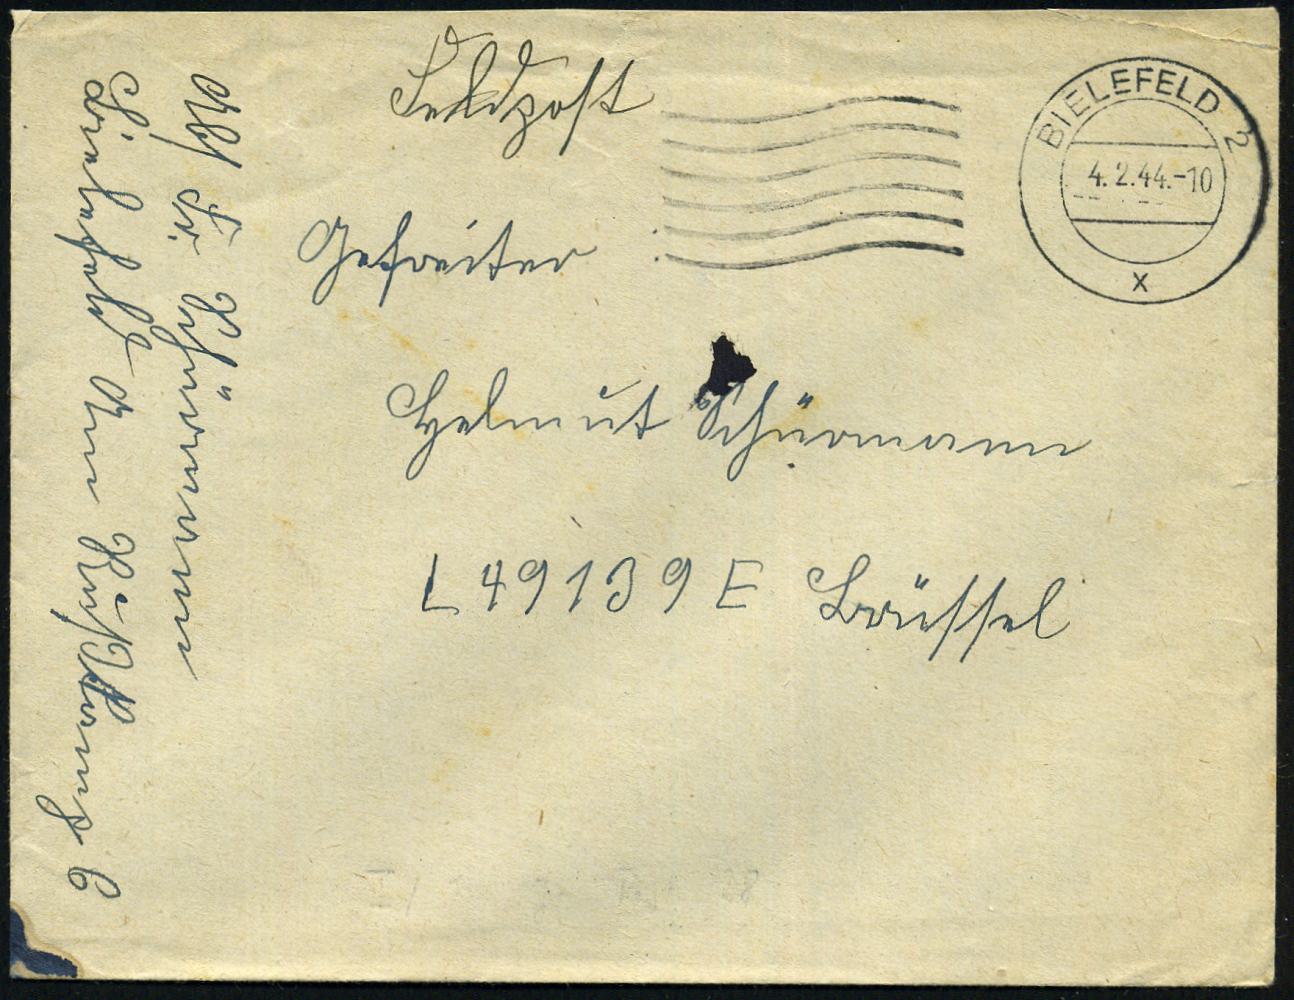 Feldpost
BIELEFELD 2
4.2.44.-10
x
Gefreiter
Helmut Schürmann
L 49139 E Brüssel
Abs Fr. Schürmann
Bielefeld Am 6